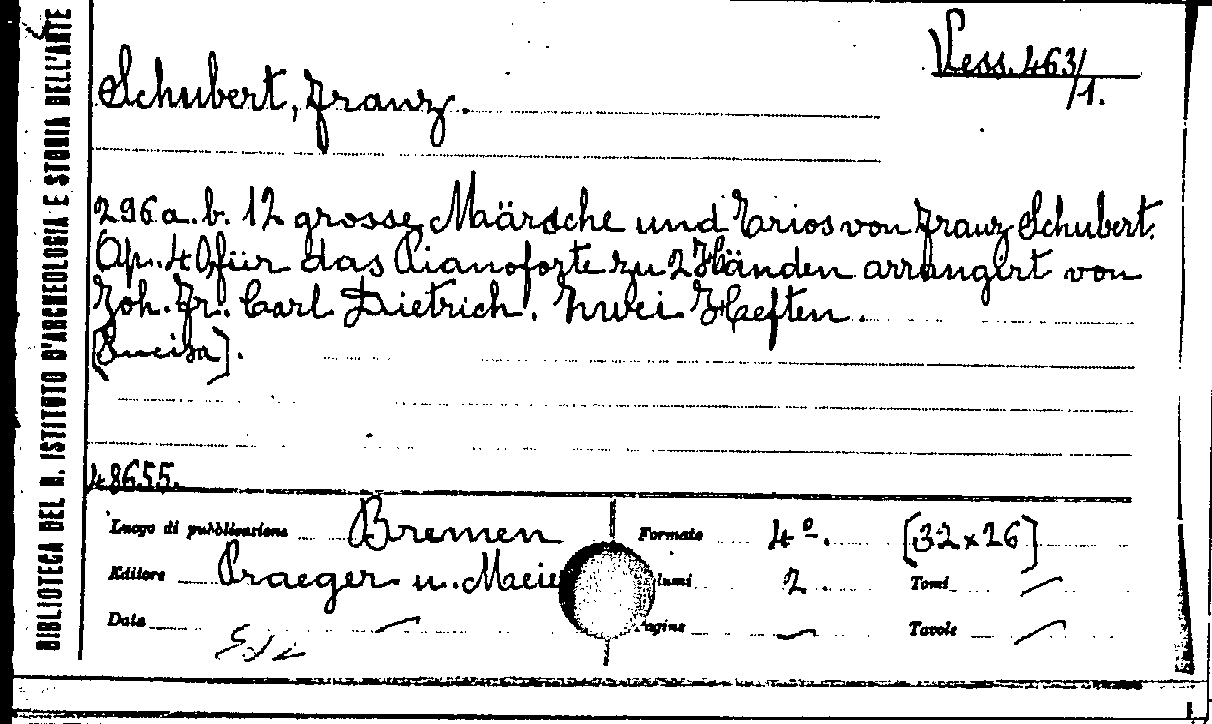 BIBLIOTECA DEL R. ISTITUTO D'ARCHEOLOGIA E STORIA DELL'ARTE
Vess. 463/
/1.
Schubert, Franz.
296 a. b. 12 grosse Märsche und Trios von Franz Schubert.
Op. 40, für das Pianoforte zu 2 Händen arrangirt von
Joh. Fr. Carl Dietrich. Zwei Heften.
[Incisa].
48655.
Luogo di pubblicazione Bremen Formato 4º. [32 x 26]
Editore Praeger u. Meie lumi 2. Tomi
Data agine Tavole